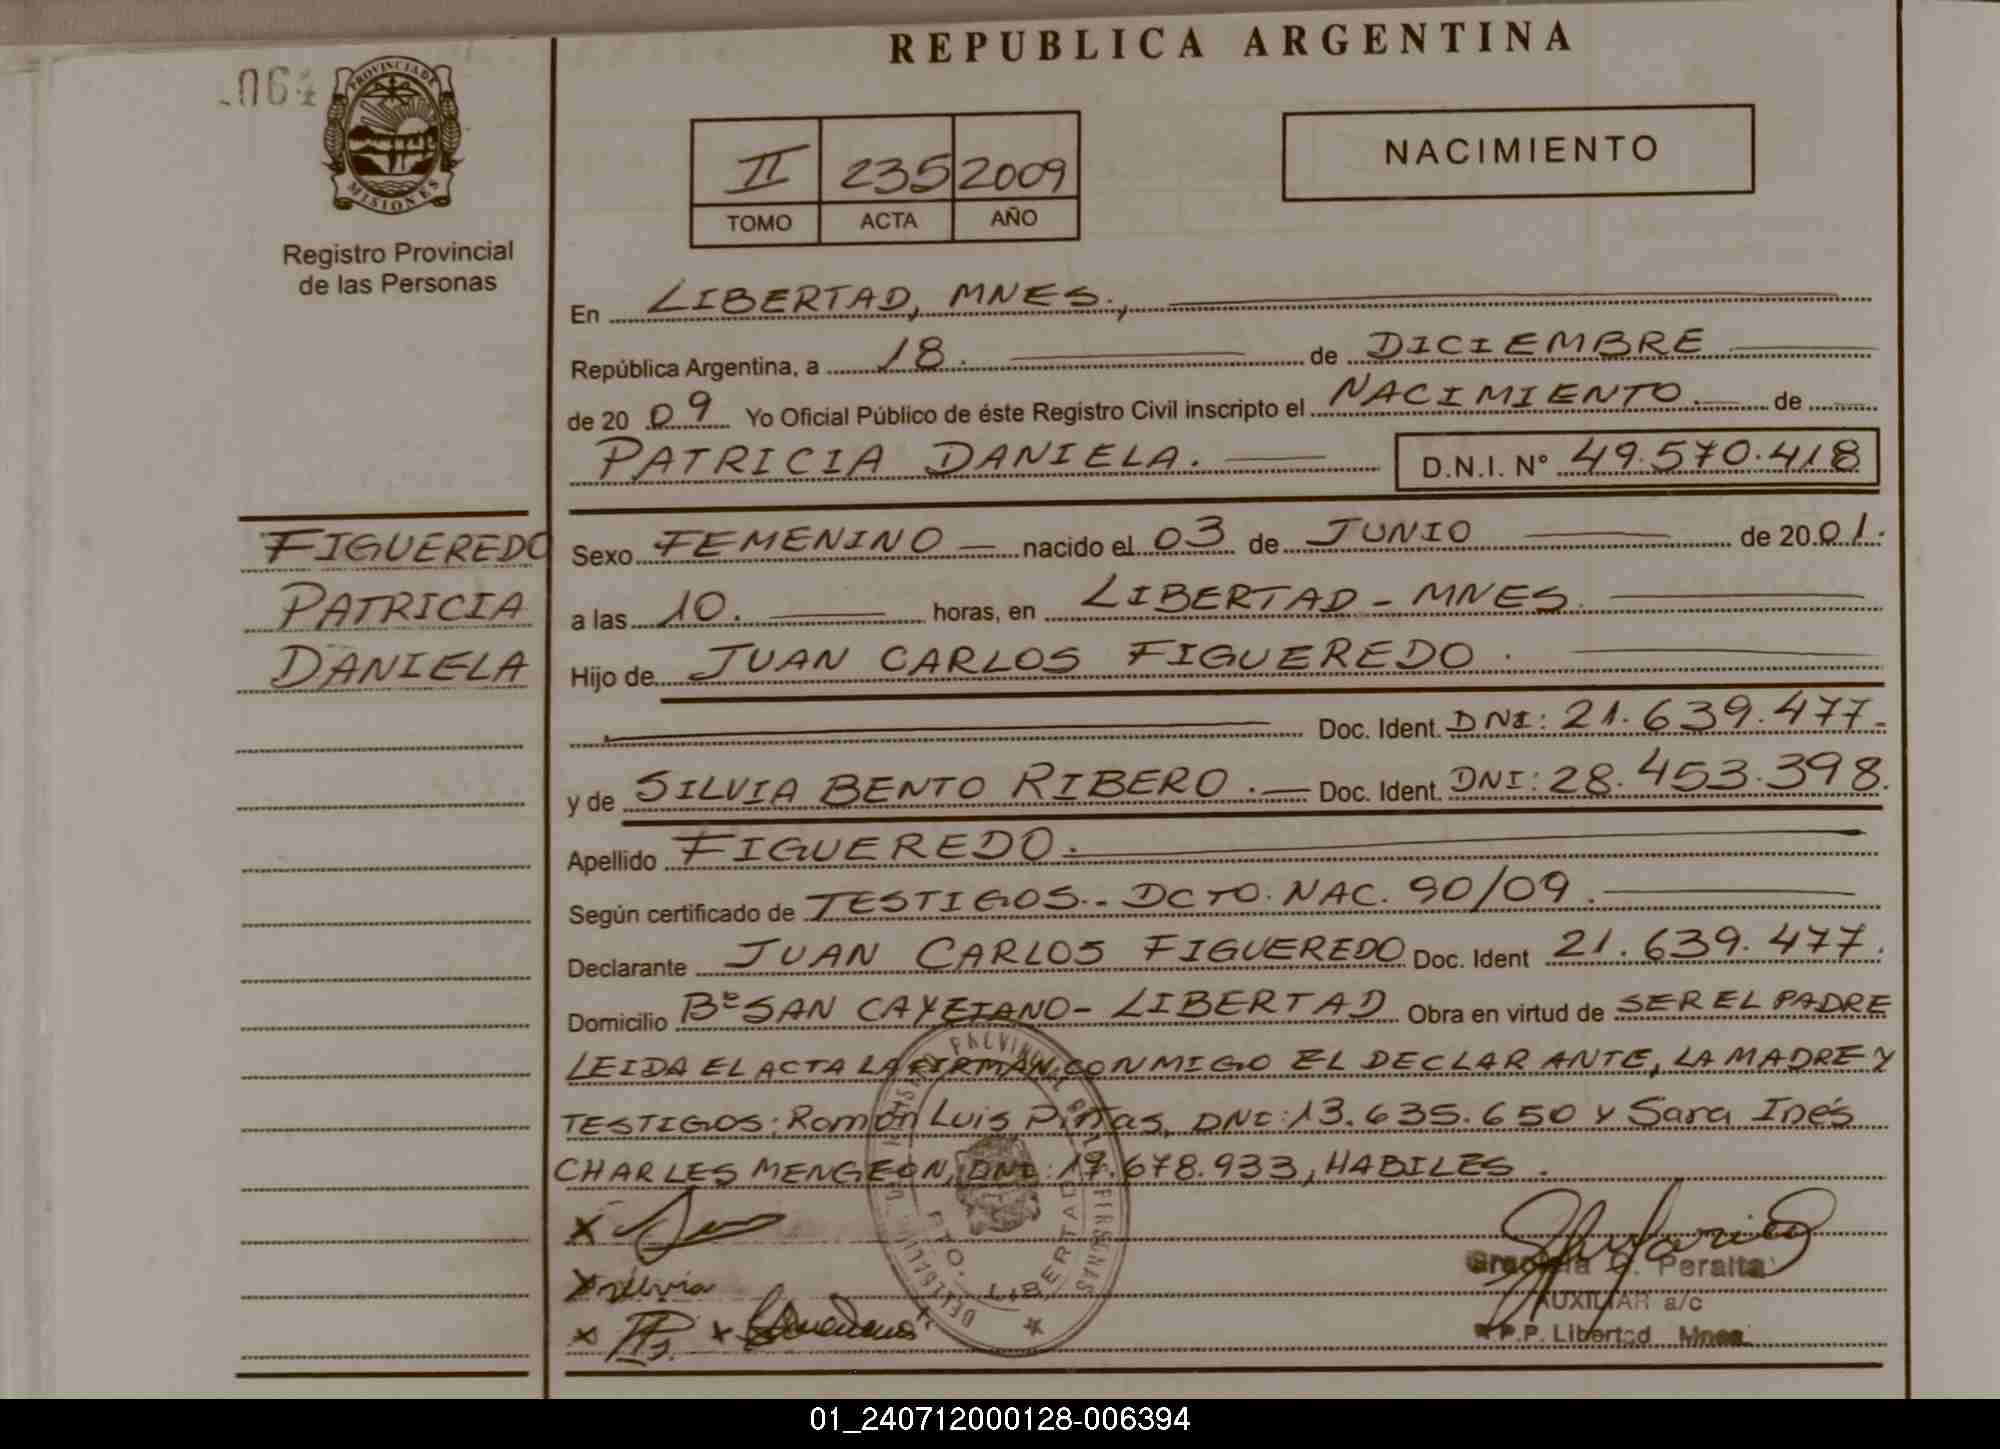 REPUBLICA ARGENTINA
.064
PROVINCIA DE
MISIONES
Registro Provincial
de las Personas
II 235 2009
TOMO ACTA AÑO
NACIMIENTO
En LIBERTAD, MNES.,
República Argentina, a 18. de DICIEMBRE
de 20 09 Yo Oficial Público de éste Registro Civil inscripto el NACIMIENTO. de
PATRICIA DANIELA. D.N.I. Nº 49.570.418
FIGUEREDO
PATRICIA
DANIELA
Sexo FEMENINO nacido el 03 de JUNIO de 20 01.
a las 10. horas, en LIBERTAD - MNES.
Hijo de JUAN CARLOS FIGUEREDO.
Doc. Ident. DNI: 21.639.477.
y de SILVIA BENTO RIBERO. Doc. Ident. DNI: 28.453.398.
Apellido FIGUEREDO.
Según certificado de TESTIGOS.- DCTO. NAC. 90/09.
Declarante JUAN CARLOS FIGUEREDO Doc. Ident 21.639.477.
Domicilio Bº SAN CAYETANO - LIBERTAD Obra en virtud de SER EL PADRE
LEIDA EL ACTA LA FIRMAN CONMIGO EL DECLARANTE, LA MADRE Y
TESTIGOS: Ramón Luis DNI: 13.635.650 y Sara Inés
CHARLES MENGEON, DNI: 17.678.933, HABILES.
Silvia
PROVINCIAL DE LAS PERSONAS
DELEGACION
PTO. LIBERTAD
Graciela Peralta
AUXILIAR a/c
R.P.P. Libertad Mnes.
01_240712000128-006394